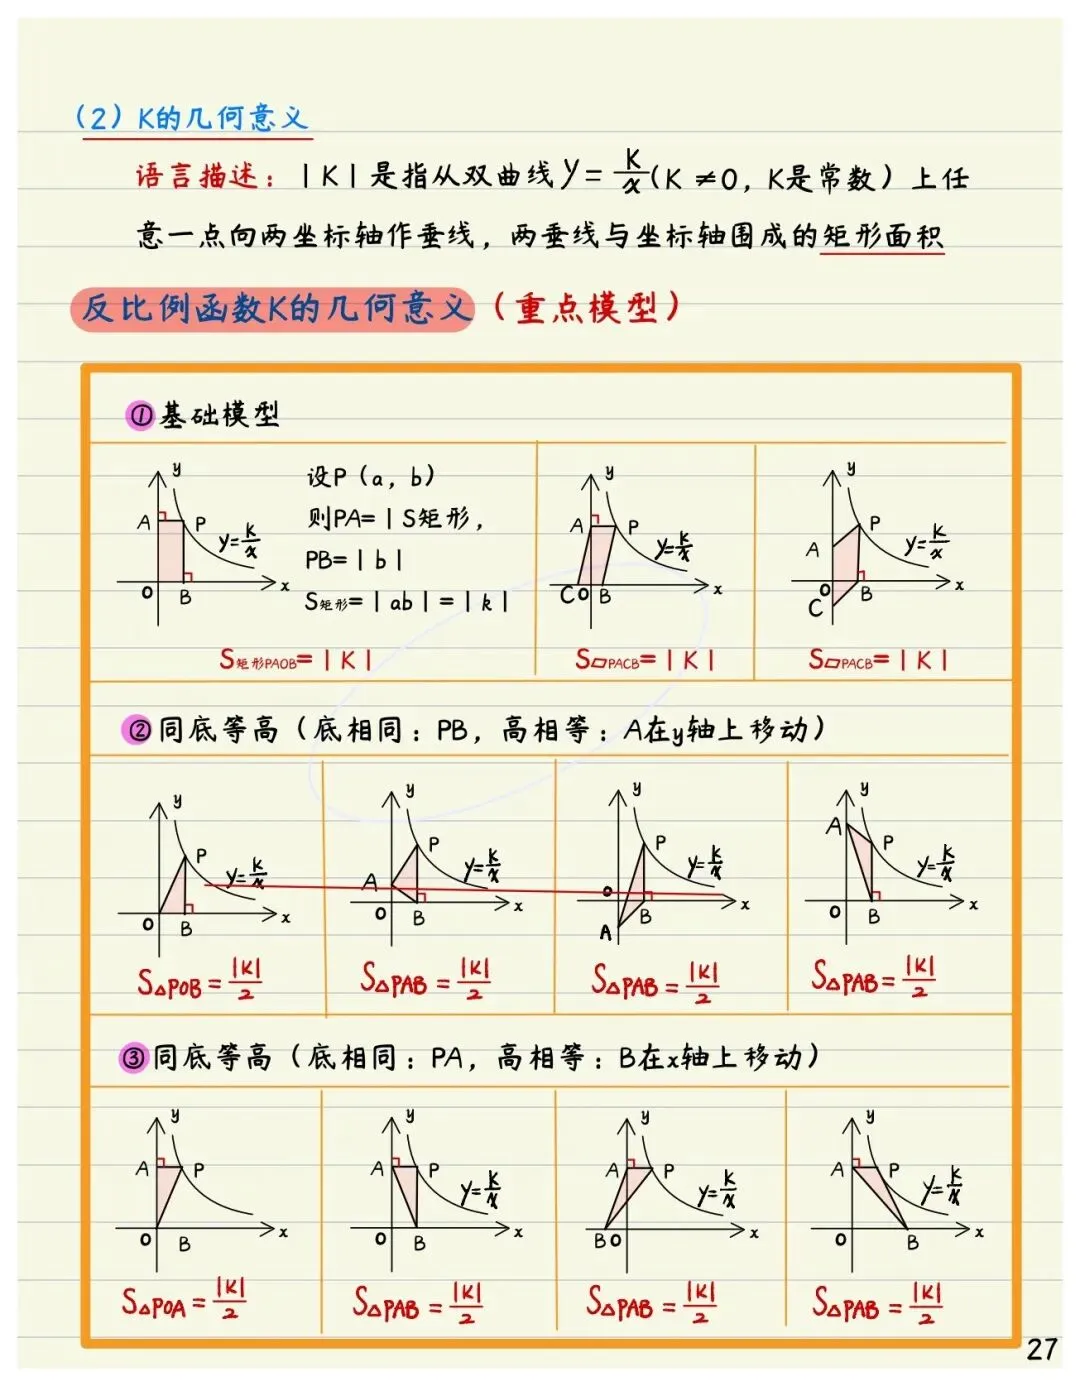 （2）K的几何意义
语言描述：|K|是指从双曲线y=K/x(K≠0，K是常数）上任
意一点向两坐标轴作垂线，两垂线与坐标轴围成的矩形面积
反比例函数K的几何意义（重点模型）
①基础模型
y A P y=K/x O B x
设P（a，b）
则PA=|S矩形，
PB=|b|
S矩形=|ab|=|k|
S矩形PAOB=|K|
y A P y=K/x C O B x
S▱PACB=|K|
y P A y=K/x O B x C
S▱PACB=|K|
②同底等高（底相同：PB，高相等：A在y轴上移动）
y P y=K/x O B x
S△POB=|K|/2
y P A y=K/x O B x
S△PAB=|K|/2
y P y=K/x O B x A
S△PAB=|K|/2
y A P y=K/x O B x
S△PAB=|K|/2
③同底等高（底相同：PA，高相等：B在x轴上移动）
y A P O B x
S△POA=|K|/2
y A P y=K/x O B x
S△PAB=|K|/2
y A P y=K/x B O x
S△PAB=|K|/2
y A P y=K/x O B x
S△PAB=|K|/2
27